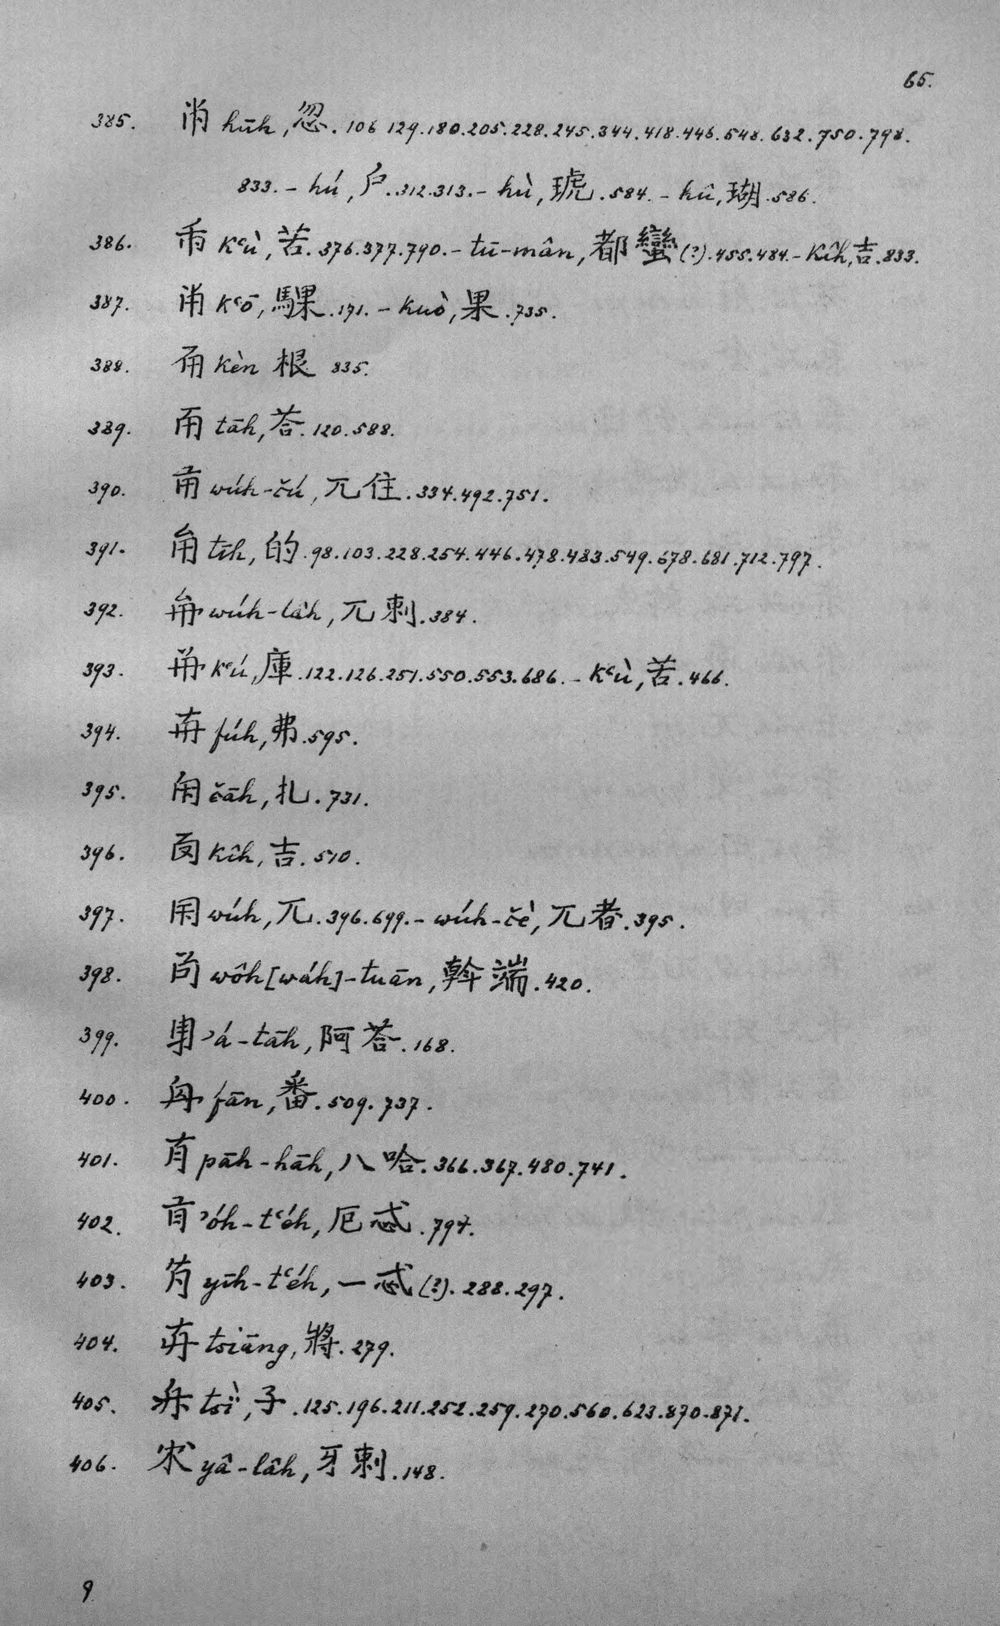 65.
385. hūh, 忽. 106 129. 180. 205. 228. 245. 344. 418. 446. 548. 632. 750. 798.
833. – hú, 戶. 312. 313. – hù, 琥. 584. – hû, 瑚. 586.
386. kʿù, 苦. 376. 377. 790. – tū-mân, 都蠻 (?). 455. 484. – kîh, 吉. 833.
387. kʿō, 騍. 171. – kuò, 果. 735.
388. kèn 根 335.
389. tāh, 荅. 120. 588.
390. wúh-čú, 兀住. 334. 492. 751.
391. tīh, 的. 98. 103. 228. 254. 446. 478. 483. 549. 678. 681. 712. 797.
392. wúh-lâh, 兀剌. 384.
393. kʿú, 庫. 122. 126. 251. 550. 553. 686. – kʿù, 苦. 466.
394. fúh, 弗. 595.
395. čāh, 扎. 731.
396. kîh, 吉. 510.
397. wúh, 兀. 396. 699. – wúh-čè, 兀者. 395.
398. wôh [wáh]-tuān, 斡端. 420.
399. ʾá-tāh, 阿荅. 168.
400. fān, 番. 509. 737.
401. pāh-hāh, 八哈. 366. 367. 480. 741.
402. ʾóh-tʿéh, 厄忒. 797.
403. yīh-tʿéh, 一忒 (?). 288. 297.
404. tsiāng, 將. 279.
405. tsï̀, 子. 125. 196. 211. 252. 259. 270. 560. 623. 870. 871.
406. yâ-lâh, 牙剌. 148.
9